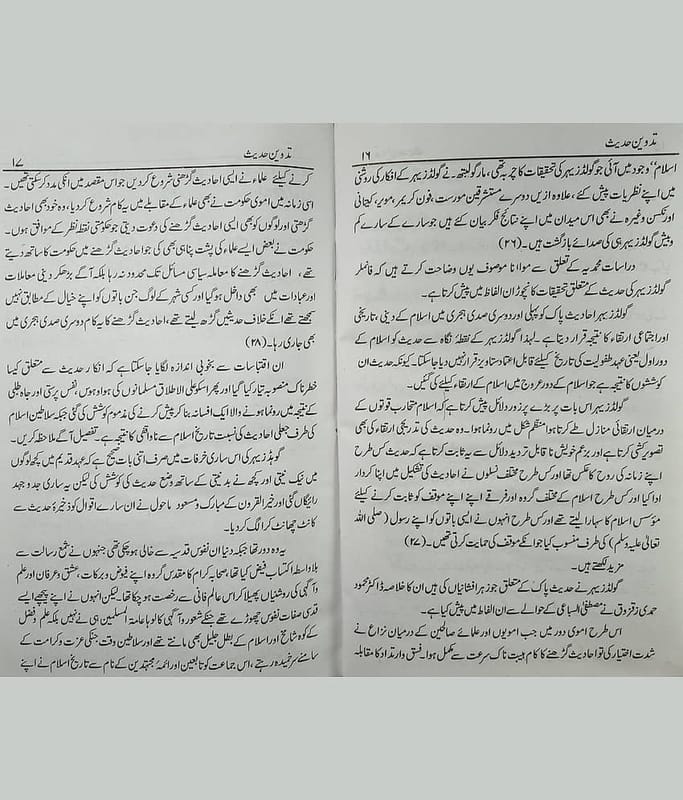 تدوین حدیث
۱۶
اسلام‘‘ وجود میں آئی جو گولڈزیہر کی تحقیقات کا چربہ تھی، مارگولیتھ نے گولڈزیہر کے افکار کی روشنی
میں اپنے نظریات پیش کئے، علاوہ ازیں دوسرے مستشرقین مورست، فون کریمر، مویر، کیتانی اور
نکسن وغیرہ نے بھی اس میدان میں اپنے نتائج فکر بیان کئے ہیں جو سارے کے سارے کم
و بیش گولڈزیہر ہی کی صدائے بازگشت ہیں۔ (۲۶)
دراسات محمدیہ کے تعلق سے مولانا موصوف یوں وضاحت کرتے ہیں کہ فانملر
گولڈزیہر کی حدیث کے متعلق تحقیقات کا نچوڑ ان الفاظ میں پیش کرتا ہے۔
گولڈزیہر احادیث پاک کو پہلی اور دوسری صدی ہجری میں اسلام کے دینی، تاریخی
اور اجتماعی ارتقاء کا نتیجہ قرار دیتا ہے۔ لہذا گولڈزیہر کے نقطۂ نگاہ سے حدیث کو اسلام کے
دور اول یعنی عہد طفولیت کی تاریخ کیلئے قابل اعتماد دستاویز قرار نہیں دیا جاسکتا۔ کیونکہ حدیث ان
کوششوں کا نتیجہ ہے جو اسلام کے دور عروج میں اسلام کے ارتقاء کیلئے کی گئیں۔
گولڈزیہر اس بات پر بڑے پر زور دلائل پیش کرتا ہے کہ اسلام متحارب قوتوں کے
درمیان ارتقائی منازل طے کرتا ہوا منظم شکل میں رونما ہوا۔ وہ حدیث کی تدریجی ارتقاء کی بھی
تصویر کشی کرتا ہے اور بزعم خویش ناقابل تردید دلائل سے یہ ثابت کرتا ہے کہ حدیث کس طرح
اپنے زمانہ کی روح کا عکس تھا اور کس طرح مختلف نسلوں نے احادیث کی تشکیل میں اپنا کردار
ادا کیا اور کس طرح اسلام کے مختلف گروہ اور فرقے اپنے اپنے موقف کو ثابت کرنے کیلئے
مؤسس اسلام کا سہارا لیتے تھے اور کس طرح انہوں نے ایسی باتوں کو اپنے رسول (صلی اللہ
تعالیٰ علیہ وسلم) کی طرف منسوب کیا جو انکے موقف کی حمایت کرتی تھیں۔ (۲۷)
مزید لکھتے ہیں۔
گولڈزیہر نے حدیث پاک کے متعلق جو زہر افشانیاں کی ہیں ان کا خلاصہ ڈاکٹر محمود
حمدی زقزوق نے مصطفیٰ السباعی کے حوالے سے ان الفاظ میں پیش کیا ہے۔
اس طرح اموی دور میں جب امویوں اور علمائے صالحین کے درمیان نزاع نے
شدت اختیار کی تو احادیث گڑھنے کا کام ہیبت ناک سرعت سے مکمل ہوا۔ فسق و ارتداد کا مقابلہ
تدوین حدیث
۱۷
کرنے کیلئے علماء نے ایسی احادیث گڑھنی شروع کردیں جو اس مقصد میں انکی مدد کرسکتی تھیں۔
اسی زمانہ میں اموی حکومت نے بھی علماء کے مقابلے میں یہ کام شروع کردیا، وہ خود بھی احادیث
گڑھتی اور لوگوں کو بھی ایسی احادیث گڑھنے کی دعوت دیتی جو حکومتی نقطہ نظر کے موافق ہوں۔
حکومت نے بعض ایسے علماء کی پشت پناہی بھی کی جو احادیث گڑھنے میں حکومت کا ساتھ دیتے
تھے، احادیث گڑھنے کا معاملہ سیاسی مسائل تک محدود نہ رہا بلکہ آگے بڑھ کر دینی معاملات
اور عبادات میں بھی داخل ہوگیا اور کسی شہر کے لوگ جن باتوں کو اپنے خیال کے مطابق نہیں
سمجھتے تھے انکے خلاف حدیثیں گڑھ لیتے تھے، احادیث گڑھنے کا یہ کام دوسری صدی ہجری میں
بھی جاری رہا۔ (۲۸)
ان اقتباسات سے بخوبی اندازہ لگایا جاسکتا ہے کہ انکار حدیث سے متعلق کیسا
خطرناک منصوبہ تیار کیا گیا اور پھر اسکو علی الاطلاق مسلمانوں کی ہوا وہوس، نفس پرستی اور جاہ طلبی
کے نتیجہ میں رونما ہونے والا ایک افسانہ بنا کر پیش کرنے کی مذموم کوشش کی گئی جبکہ سلاطین اسلام
کی طرف جعلی احادیث کی نسبت تاریخ اسلام سے ناواقفی کا نتیجہ ہے۔ تفصیل آگے ملاحظہ کریں۔
گولڈزیہر کی اس ساری خرافات میں صرف اتنی بات صحیح ہے کہ عہد قدیم میں کچھ لوگوں
میں نیک نیتی اور کچھ نے بدنیتی کے ساتھ وضع حدیث کی کوشش کی لیکن یہ ساری جدوجہد
رائیگاں گئی اور خیر القرون کے مبارک و مسعود ماحول نے ان سارے اقوال کو ذخیرۂ حدیث سے
کانٹ چھانٹ کر الگ کردیا۔
یہ وہ دور تھا جبکہ دنیا ان نفوس قدسیہ سے خالی ہوچکی تھی جنہوں نے شمع رسالت سے
بلاواسطہ اکتساب فیض کیا تھا، صحابہ کرام کا مقدس گروہ اپنے فیوض و برکات، عشق و عرفان اور علم
و آگہی کی روشنیاں پھیلا کر اس عالم فانی سے رخصت ہوچکا تھا۔ لیکن انہوں نے اپنے پیچھے ایسے
قدسی صفات نفوس چھوڑے تھے جنکے شعور و آگہی کا لوہا عامۃ المسلمین ہی نے نہیں بلکہ علم وفضل
کے کوہ شامخ اور اسلام کے بطل جلیل بھی مانتے تھے اور سلاطین وقت جنکی عزت و کرامت کے
سامنے سر خمیدہ رہتے، اس جماعت کو تابعین اور ائمۂ مجتہدین کے نام سے تاریخ اسلام نے اپنے